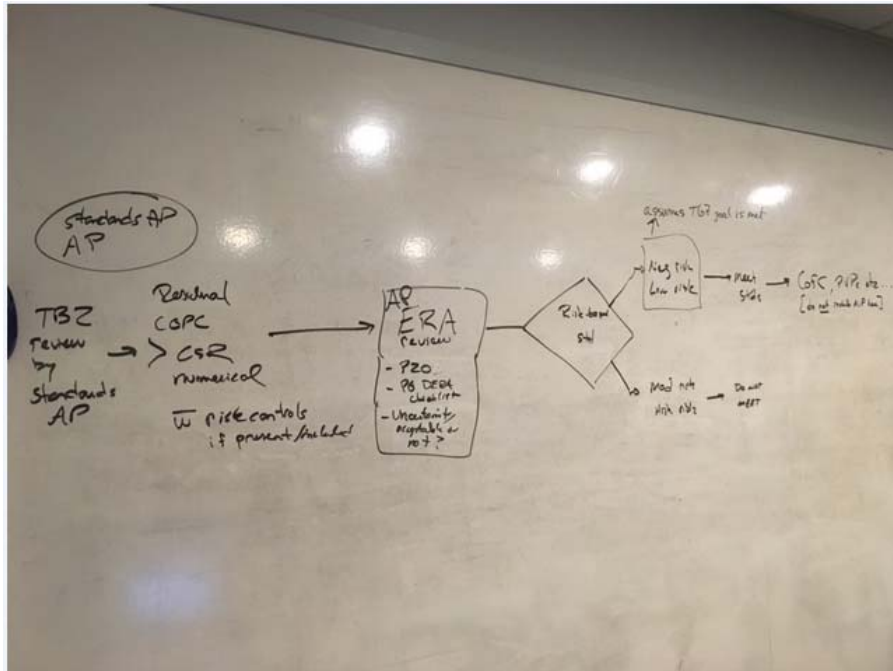 standards AP
AP
TBZ
review
by
standards
AP
Residual
COPC
> CSR
numerical
w̅ risk controls
if present/included
AP
ERA
review
- P20
- P8 DERA
checklist
- Uncertainty
acceptable or
not?
Risk based
std
assumes TG7 goal is met
Neg risk
Low risk
meet
stds
CofC, PVPs etc...
[do not include AiP here]
Mod risk
High risk
Do not
meet